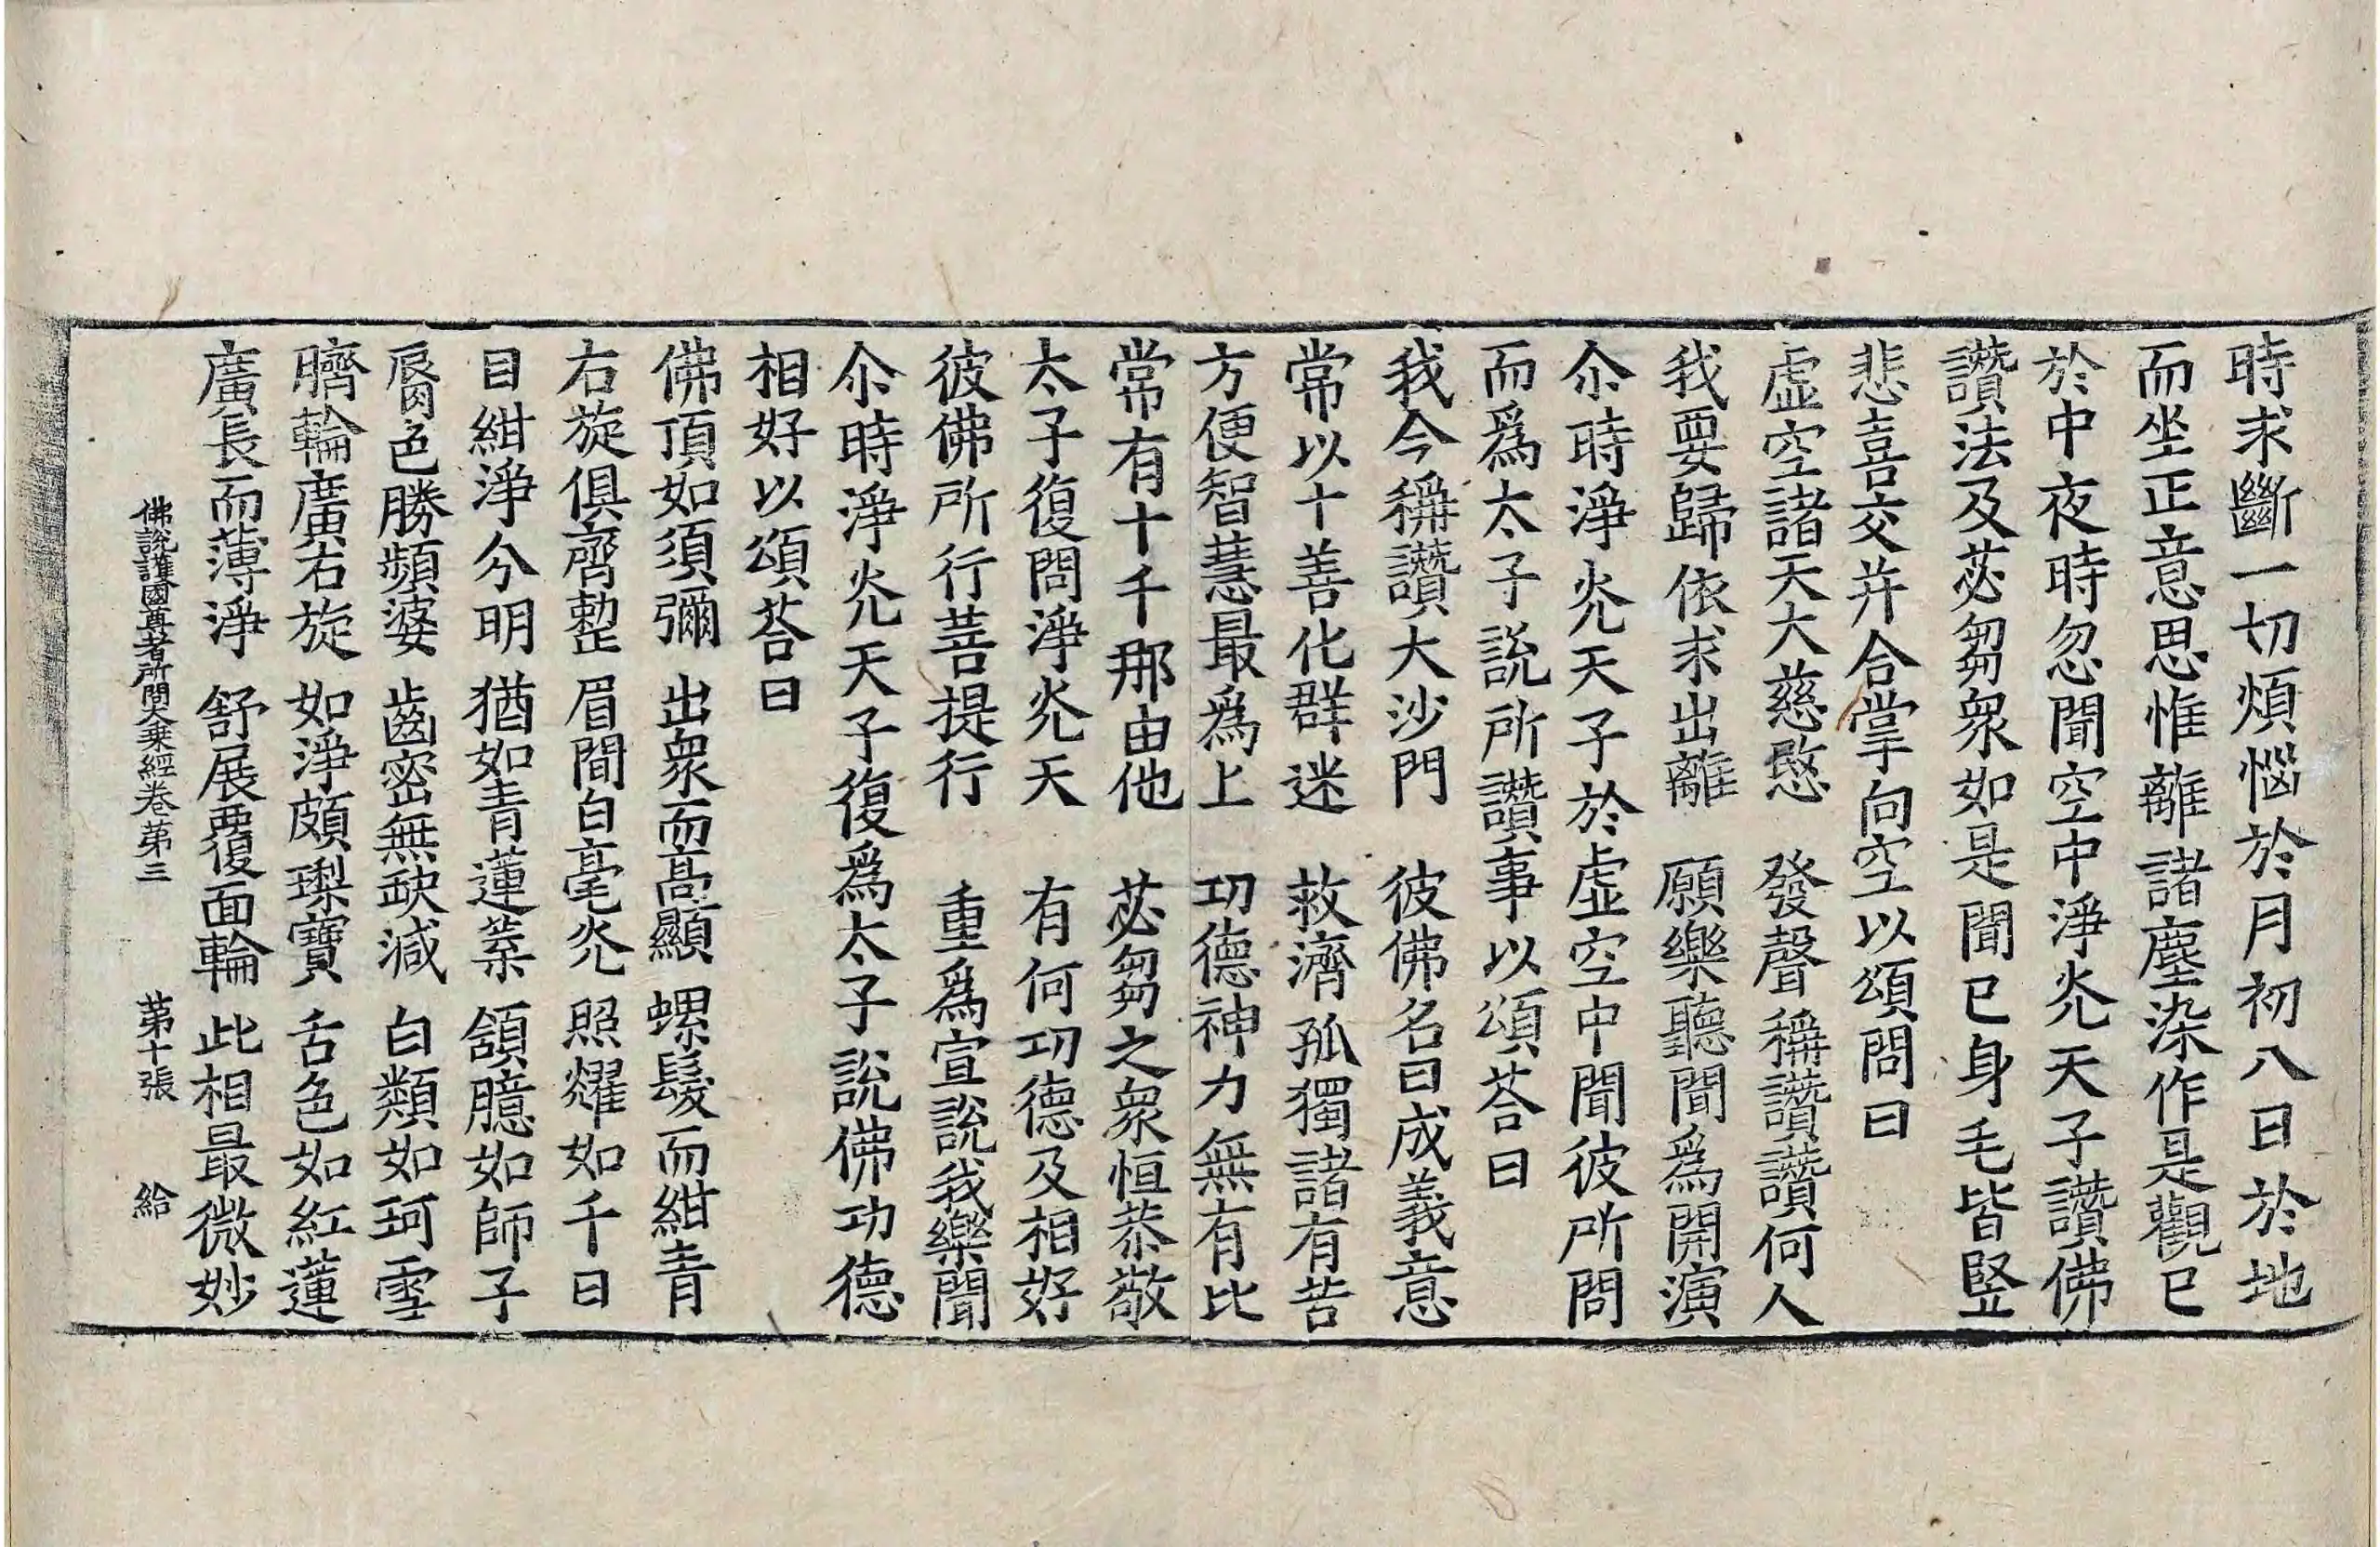 時求斷一切煩惱於月初八日於地
而坐正意思惟離諸塵染作是觀已
於中夜時忽聞空中淨灮天子讚佛
讚法及苾芻衆如是聞已身毛皆竪
悲喜交幷合掌向空以頌問曰
虛空諸天大慈愍　發聲稱讚讚何人
我要歸依求出離　願樂聽聞爲開演
尒時淨灮天子於虛空中聞彼所問
而爲太子說所讚事以頌荅曰
我今稱讚大沙門　彼佛名曰成義意
常以十善化群迷　救濟孤獨諸有苦
方便智慧最爲上　功德神力無有比
常有十千那由他　苾芻之衆恒恭敬
太子復問淨灮天　有何功德及相好
彼佛所行菩提行　重爲宣說我樂聞
尒時淨灮天子復爲太子說佛功德
相好以頌荅曰
佛頂如須彌　出衆而高顯　螺髮而紺青
右旋俱齊整　眉間白毫灮　照耀如千日
目紺淨分明　猶如青蓮葉　頷臆如師子
脣色勝頻婆　齒密無缺減　白類如珂雪
臍輪廣右旋　如淨頗瓈寶　舌色如紅蓮
廣長而薄淨　舒展覆面輪　此相最微妙
佛說護國尊者所問大乘經卷第三　第十張　給